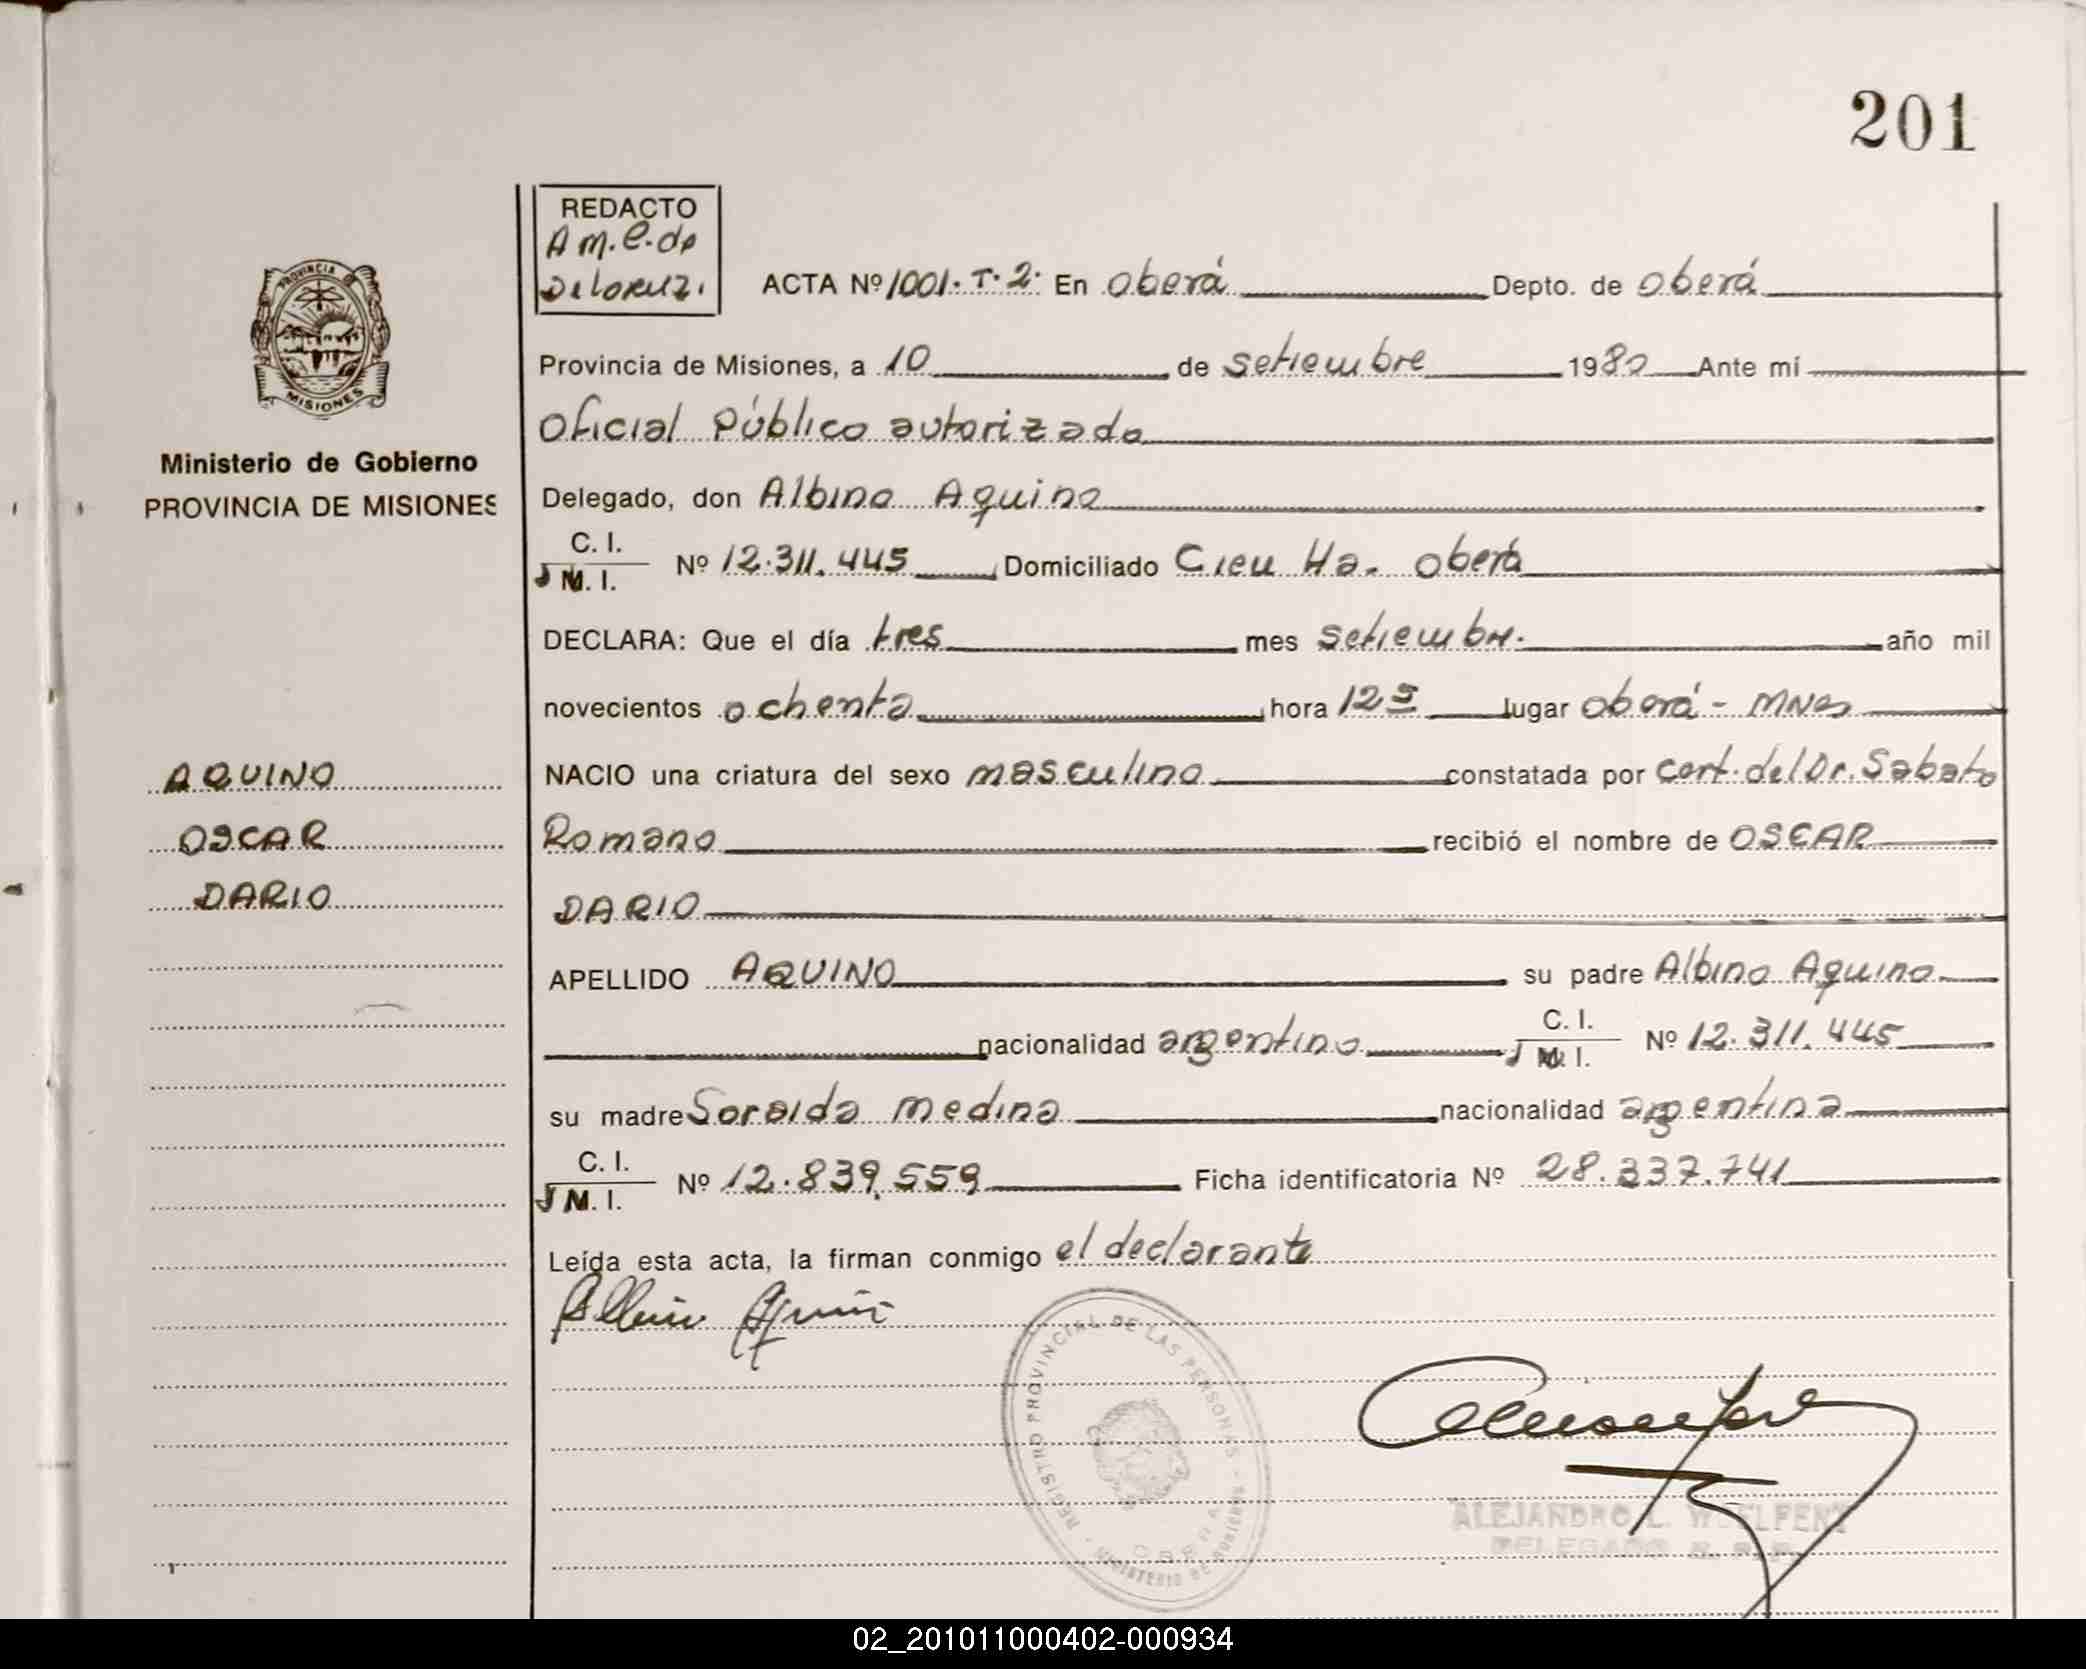 201
REDACTO
A m. C. de
Delorenzi.
ACTA Nº 1001. T. 2. En Oberá Depto. de Oberá
PROVINCIA DE
MISIONES
Provincia de Misiones, a 10 de setiembre 1980 Ante mí
Oficial Público autorizado
Ministerio de Gobierno
PROVINCIA DE MISIONES
Delegado, don Albino Aquino
C. I.
M. I. Nº 12.311.445 Domiciliado Cien Ha. Oberá
DECLARA: Que el día tres mes setiembre. año mil
novecientos ochenta hora 12 lugar Oberá - Mnes
AQUINO
NACIO una criatura del sexo masculino constatada por cert. del Dr. Sabato
OSCAR
Romano recibió el nombre de OSCAR
DARIO
DARIO
APELLIDO AQUINO su padre Albino Aquino
nacionalidad argentino C. I.
M. I. Nº 12.311.445
su madre Soraida Medina nacionalidad argentina
C. I.
M. I. Nº 12.839.559 Ficha identificatoria Nº 28.337.741
Leída esta acta, la firman conmigo el declarante
Albino Aquino
REGISTRO PROVINCIAL DE LAS PERSONAS
OBERA
ALEJANDRO L. WOELFERT
DELEGADO R. P. P.
02_201011000402-000934